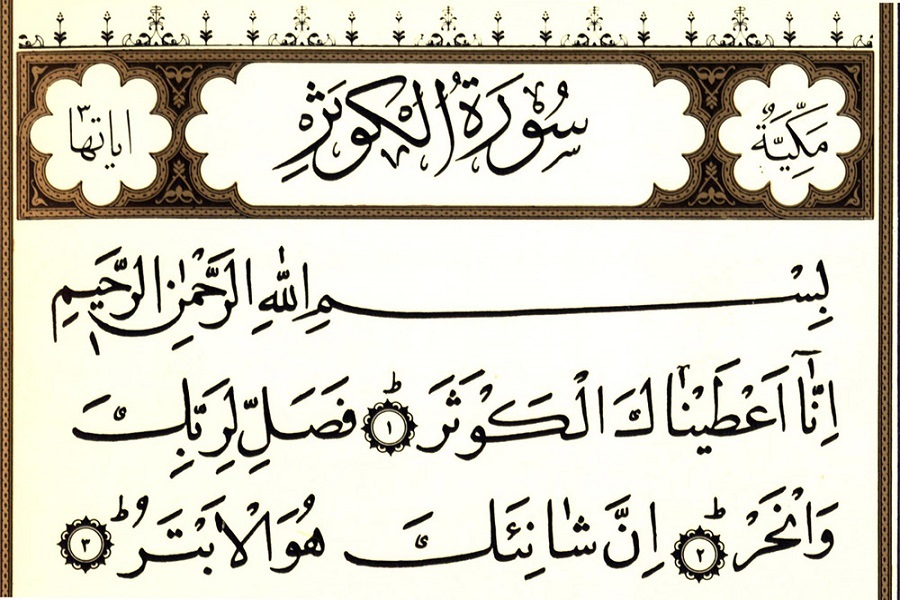 مَكِّيَّةٌ
سُورَةُ الْكَوْثَرِ
اياتها ٣
بِسْمِ اللّٰهِ الرَّحْمٰنِ الرَّحِيمِ
اِنَّٓا اَعْطَيْنَاكَ الْكَوْثَرَ ﴿١﴾ ط فَصَلِّ لِرَبِّكَ
وَانْحَرْ ﴿٢﴾ ط اِنَّ شَانِئَكَ هُوَ الْاَبْتَرُ ﴿٣﴾ ط